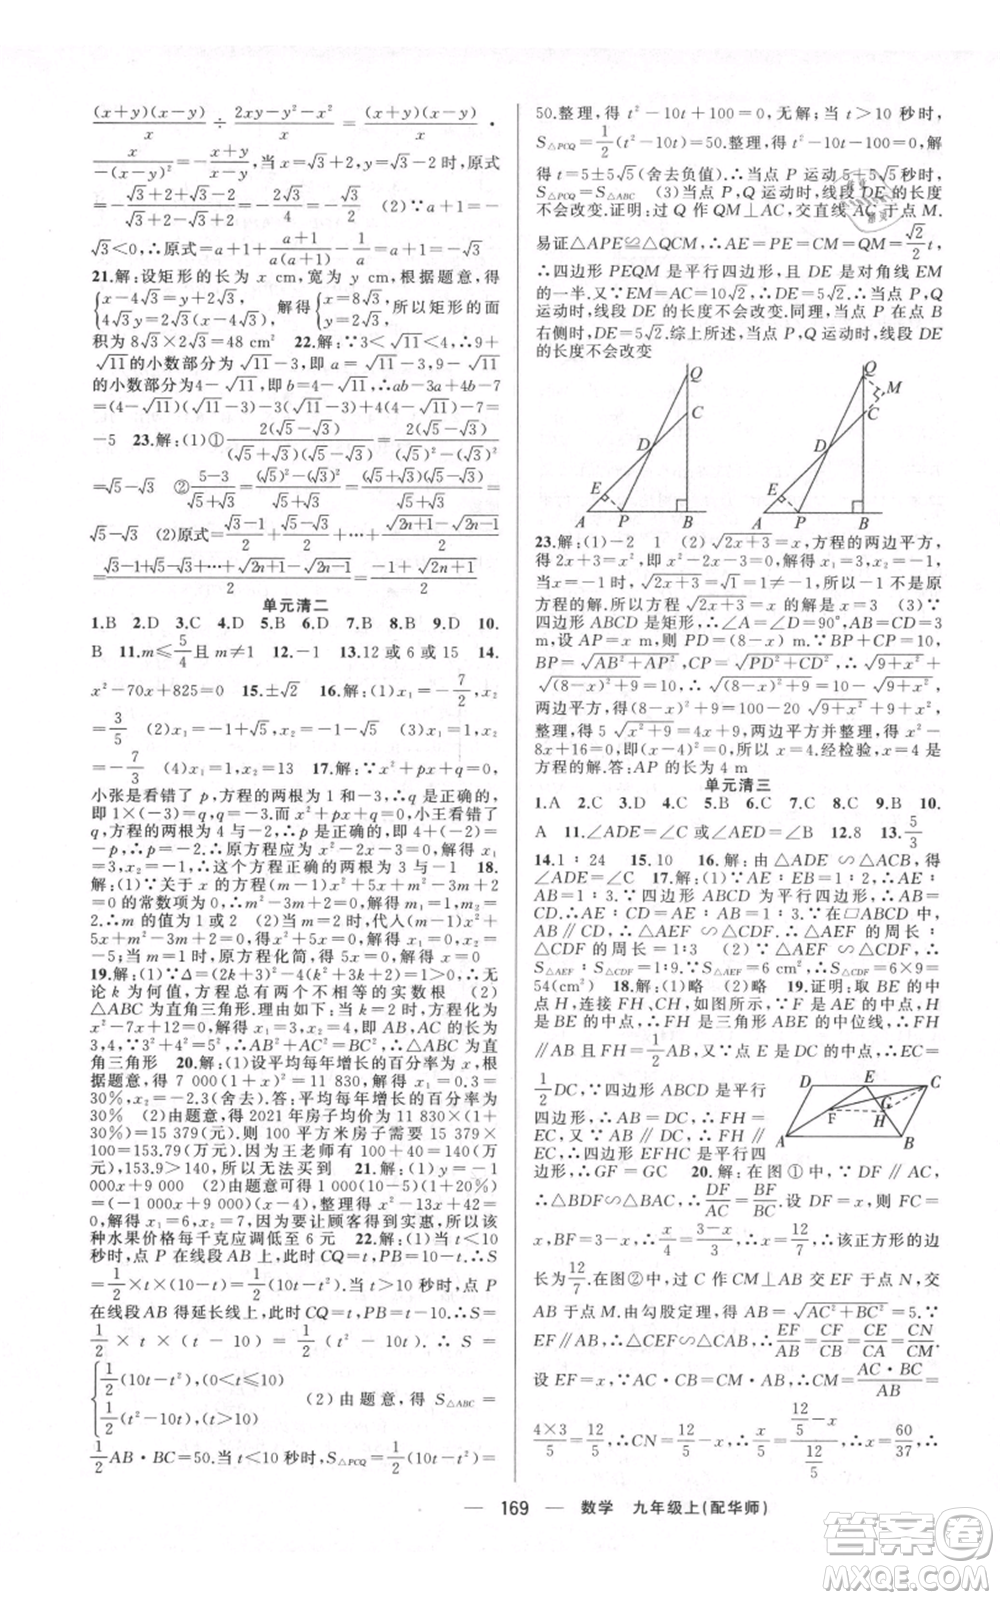 (x+y)(x-y)/x ÷ (2xy-y²-x²)/x = (x+y)(x-y)/x ·
x/(-(x-y)²) = -(x+y)/(x-y),当 x=√3+2,y=√3-2时,原式=
-(√3+2+√3-2)/(√3+2-√3+2) = -2√3/4 = -√3/2 (2)∵a+1=-
√3<0,∴原式=a+1+(a+1)/(a(a+1))=a+1+1/a=a+1=-√3
21.解:设矩形的长为 x cm,宽为 y cm,根据题意,得
{x-4√3=y+2√3, 4√3y=2√3(x-4√3), 解得{x=8√3, y=2√3, 所以矩形的面
积为8√3×2√3=48 cm² 22.解:∵3<√11<4,∴9+
√11的小数部分为√11-3,即 a=√11-3,9-√11
的小数部分为4-√11,即 b=4-√11,∴ab-3a+4b-7
=(4-√11)(√11-3)-3(√11-3)+4(4-√11)-7=
-5 23.解:(1)①2(√5-√3)/((√5+√3)(√5-√3))=2(√5-√3)/((√5)²-(√3)²)
=√5-√3 ②(5-3)/(√5+√3)=((√5)²-(√3)²)/(√5+√3)=(√5+√3)(√5-√3)/(√5+√3)=
√5-√3 (2)原式=(√3-1)/2+(√5-√3)/2+…+(√2n+1-√2n-1)/2=
(√3-1+√5-√3+…+√2n+1-√2n-1)/2=(-1+√2n+1)/2
单元清二
1.B 2.D 3.C 4.D 5.B 6.B 7.B 8.B 9.D 10.
B 11.m≤5/4且 m≠1 12.-1 13.12 或 6 或 15 14.
x²-70x+825=0 15.±√2 16.解:(1)x₁=-7/2,x₂
=3/5 (2)x₁=-1+√5,x₂=-1-√5 (3)x₁=-1,x₂=
-7/3 (4)x₁=1,x₂=13 17.解:∵x²+px+q=0,
小张是看错了 p,方程的两根为 1 和-3,∴
1×(-3)=q,q=-3,小王看错了
q,方程的两根为 4 与-2,∴4+(-2)=-p,p=
-2,∴这个方程正确的两根为 3 与-1 18.
解:(1)∵关于 x 的方程(m-1)x²+5x+m²-3m+2=0
的常数项为 0,∴m²-3m+2=0,解得 m₁=1,m₂
=2,∴m 的值为 1 或 2 (2)当 m=2 时,代入(m-1)x²+
5x+m²-3m+2=0,得出 x²+5x=0,x(x+5)=0,解得 x₁=0,x₂
=-5;当 m=1 时,原方程化简,得 5x=0,解得 x=0
19.解:(1)∵Δ=(2k+3)²-4(k²+3k+2)=1>0,∴无
论 k 为何值,方程总有两个不相等的实数根 (2)
△ABC 为直角三角形.理由如下:当 k=2 时,方程化为
x²-7x+12=0,解得 x₁=3,x₂=4,即 AB,AC 的长为
3,4,∵3²+4²=5²,∴AB²+AC²=BC²,∴△ABC 为直
角三角形 20.解:(1)设平均每年增长的百分率为 x,根
据题意,得 7 000(1+x)²=11 830,解得 x₁=0.3=
30%,x₂=-2.3(舍去).答:平均每年增长的百分率为
30% (2)由题意,得 2021 年房子均价为 11 830×(1+
30%)=15 379(元),则 100 平方米房子需要 15 379×
100=153.79(万元),因为王老师有
000x+15 000(0<x<8) (2)由题意可得(-1
000x+15 000)(x-4)=(-1 000×7+15 000)×(7-4)
=(-1 000x+15 000)(x-4),整理得 x²-19x+
解得 x₁=6,x₂=7,为了让顾客得到实惠,所以该
种水果价格每千克应调低至 6 元 22.解:(1)当 t<10 秒
时,点 P 在线段 AB 上,此时 CQ=t,PB=10-t.∴S
=1/2×t×(10-t)=1/2(10t-t²).当 t>10 秒时,点 P 在
在线段 AB 得延长线上,此时 CQ=t,PB=t-10.∴S=
1/2×t×(t-10)=1/2(t²-10t).∴S=
{1/2(10t-t²),(0<t≤10) 1/2(t²-10t),(t>10) (2)由题意,得 S△ABC=
1/2AB·BC=50.当 t<10 秒时,S△PCQ=1/2(10t-t²)=
50.整理,得 t²-10t+100=0,无解;当 t>10 秒时,
S△PCQ=1/2(t²-10t)=50.整理,得 t²-10t-100=0,解
得 t=5±5√5(舍去负值).∴当点 P 运动 5+5√5秒时,
S△PCQ=S△ABC (3)当点 P,Q 运动时,线段 DE 的长度
不会改变.证明:过 Q 作 QM⊥AC,交直线 AC 于点 M.
易证△APE≌△QCM,∴AE=PE=CM=QM=√2/2t,
∴四边形 PEQM 是平行四边形,且 DE 是对角线 EM
的一半.又∵EM=AC=10√2,∴DE=5√2.∴当点 P,Q
运动时,线段 DE 的长度不会改变.同理,当点 P 在点 B
右侧时,DE=5√2.综上所述,当点 P,Q 运动时,线段 DE
的长度不会改变
Q
C
D
E
A P B
Q
M
C
D
E
A P B
23.解:(1)-2 1 (2)√2x+3=x,方程的两边平方,
得 2x+3=x²,即 x²-2x-3=0,解得 x₁=3,x₂=-1,
当 x=-1 时,√2x+3=√1=1≠-1,所以-1 不是原
方程的解.所以方程√2x+3=x 的解是 x=3 (3)∵
四边形 ABCD 是矩形,∴∠A=∠D=90°,AB=CD=3
m,设 AP=x m,则 PD=(8-x) m,∵BP+CP=10,
BP=√AB²+AP²,CP=√CD²+PD²,∴√9+x²+
√(8-x)²+9=10,∴√(8-x)²+9=10-√9+x²,
两边平方,得(8-x)²+9=100-20√9+x²+9+x²,
整理,得 5√x²+9=4x+9,两边平方并整理,得 x²-
8x+16=0,即(x-4)²=0,解得 x=4.经检验,x=4 是
方程的解.答:AP 的长为 4 m
单元清三
1.A 2.C 3.D 4.C 5.B 6.C 7.B 8.C 9.B 10.
A 11.∠ADE=∠C 或∠AED=∠B 12.8 13.5/3
14.1∶24 15.10 16.解:由△ADE∽△ACB,得
∠ADE=∠C 17.解:(1)∵AE∶EB=1∶2,∴AE∶
CD=1∶3.∵四边形 ABCD 为平行四边形,∴AB∥
CD,∴△AEF∽△CDF,∴在□ABCD 中,△AEF 的周长∶
△CDF 的周长=1∶3 (2)∵△AEF∽△CDF,∴
S△AEF∶S△CDF=1∶9.∵S△AEF=6 cm²,∴S△CDF=6×9=
54(cm²) 18.解:(1)略 (2)略 19.证明:取 BE 的中
点 H,连接 FH,CH,∵F 是 AE 的中点,H
是 BE 的中点,∴FH 是三角形 ABE 的中位线,∴FH
∥AB 且 FH=1/2AB.又∵点 E 是 DC 的中点,∴EC=
1/2DC,∵四边形 ABCD 是平行
四边形,∴AB∥DC,∴FH=
EC,又∵AB∥DC,∴FH∥
EC,∴四边形 EFHC 是平行四边
形,∴GF=GC 20.解:在图①中,∵DF∥AC,
D E C
F G H
A B
∴△BDF∽△BAC,∴DF/AC=BF/BC.设 DF=x,则 FC=
x,∵BC=3,AC=4,∴x/4=(3-x)/3,∴x=12/7,∴该正方形的边
长为12/7.在图②中,过 C 作 CM⊥AB 交 EF 于点 N,交
AB 于点 M.由勾股定理,得 AB=√AC²+BC²=5.∵
EF∥AB,∴△CEF∽△CAB,∴EF/AB=CE/CA=CN/CM.
设 EF=x,∵四边形为正方形,∴CM=AC·BC/AB=
4×3/5=12/5,∴CN=12/5-x,∴x/5=(12/5-x)/(12/5),∴x=60/37,∴
— 169 — 数学 九年级上(配华师)
答案圈
MXQE.COM